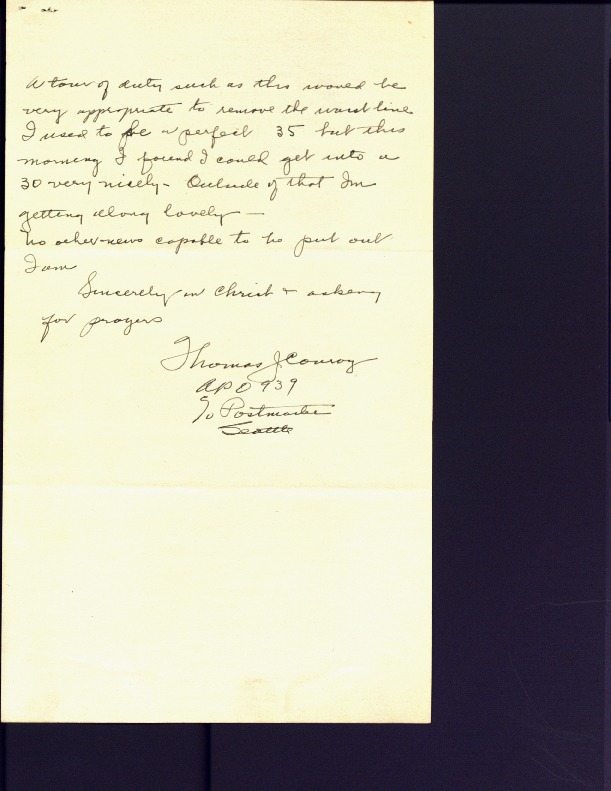 A tour of duty such as this would be
very appropriate to remove the waist line
I used to be a perfect 35 but this
morning I found I could get into a
30 very nicely - Outside of that Im
getting along lovely —
No other news capable to be put out
I am
Sincerely in Christ + asking
for prayers
Thomas J Conroy
APO 939
c/o Postmaster
Seattle